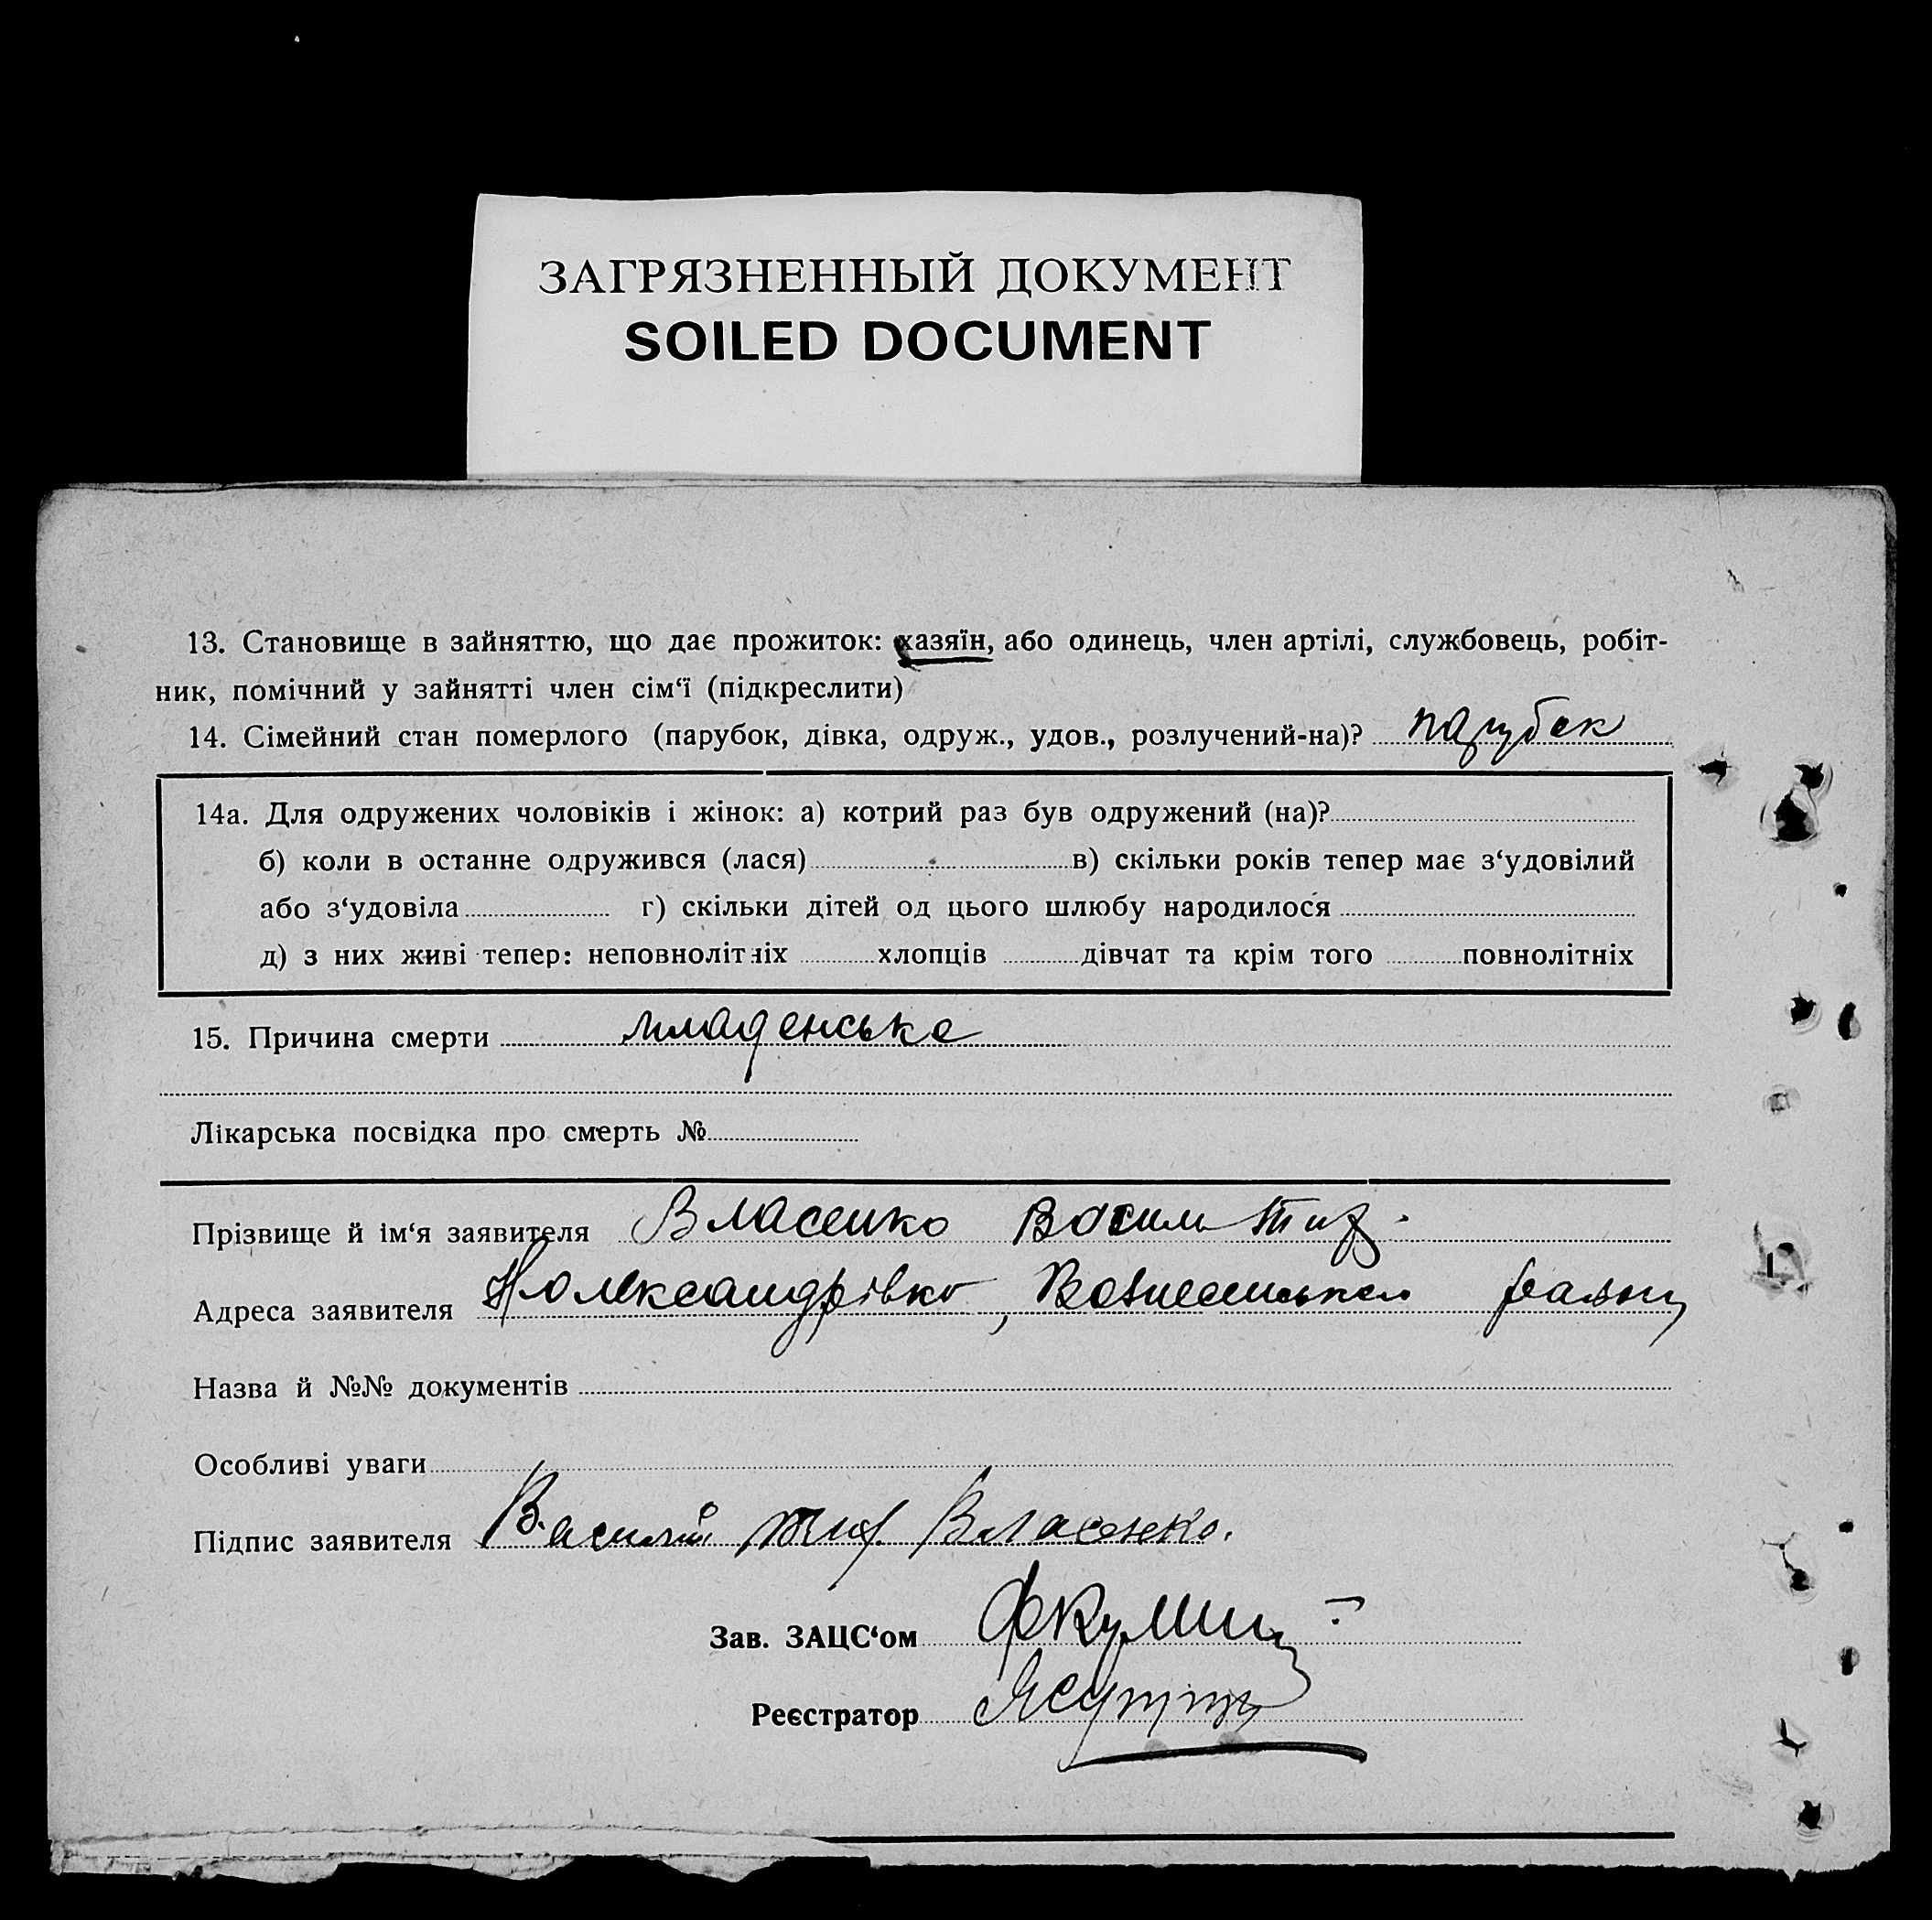 ЗАГРЯЗНЕННЫЙ ДОКУМЕНТ
SOILED DOCUMENT
13. Становище в зайняттю, що дає прожиток: хазяїн, або одинець, член артілі, службовець, робіт-
ник, помічний у зайнятті член сім‘ї (підкреслити)
14. Сімейний стан померлого (парубок, дівка, одруж., удов., розлучений-на)? парубок
14а. Для одружених чоловіків і жінок: а) котрий раз був одружений (на)?
б) коли в останнє одружився (лася) в) скільки років тепер має з‘удовілий
або з‘удовіла г) скільки дітей од цього шлюбу народилося
д) з них живі тепер: неповнолітніх хлопців дівчат та крім того повнолітніх
15. Причина смерти младенське
Лікарська посвідка про смерть №
Прізвище й ім'я заявителя Власенко Василь Тиф.
Адреса заявителя Н Олександрівка, Вознесенського району
Назва й №№ документів
Особливі уваги
Підпис заявителя Василий Тиф. Власенко.
Зав. ЗАЦС‘ом
Реєстратор